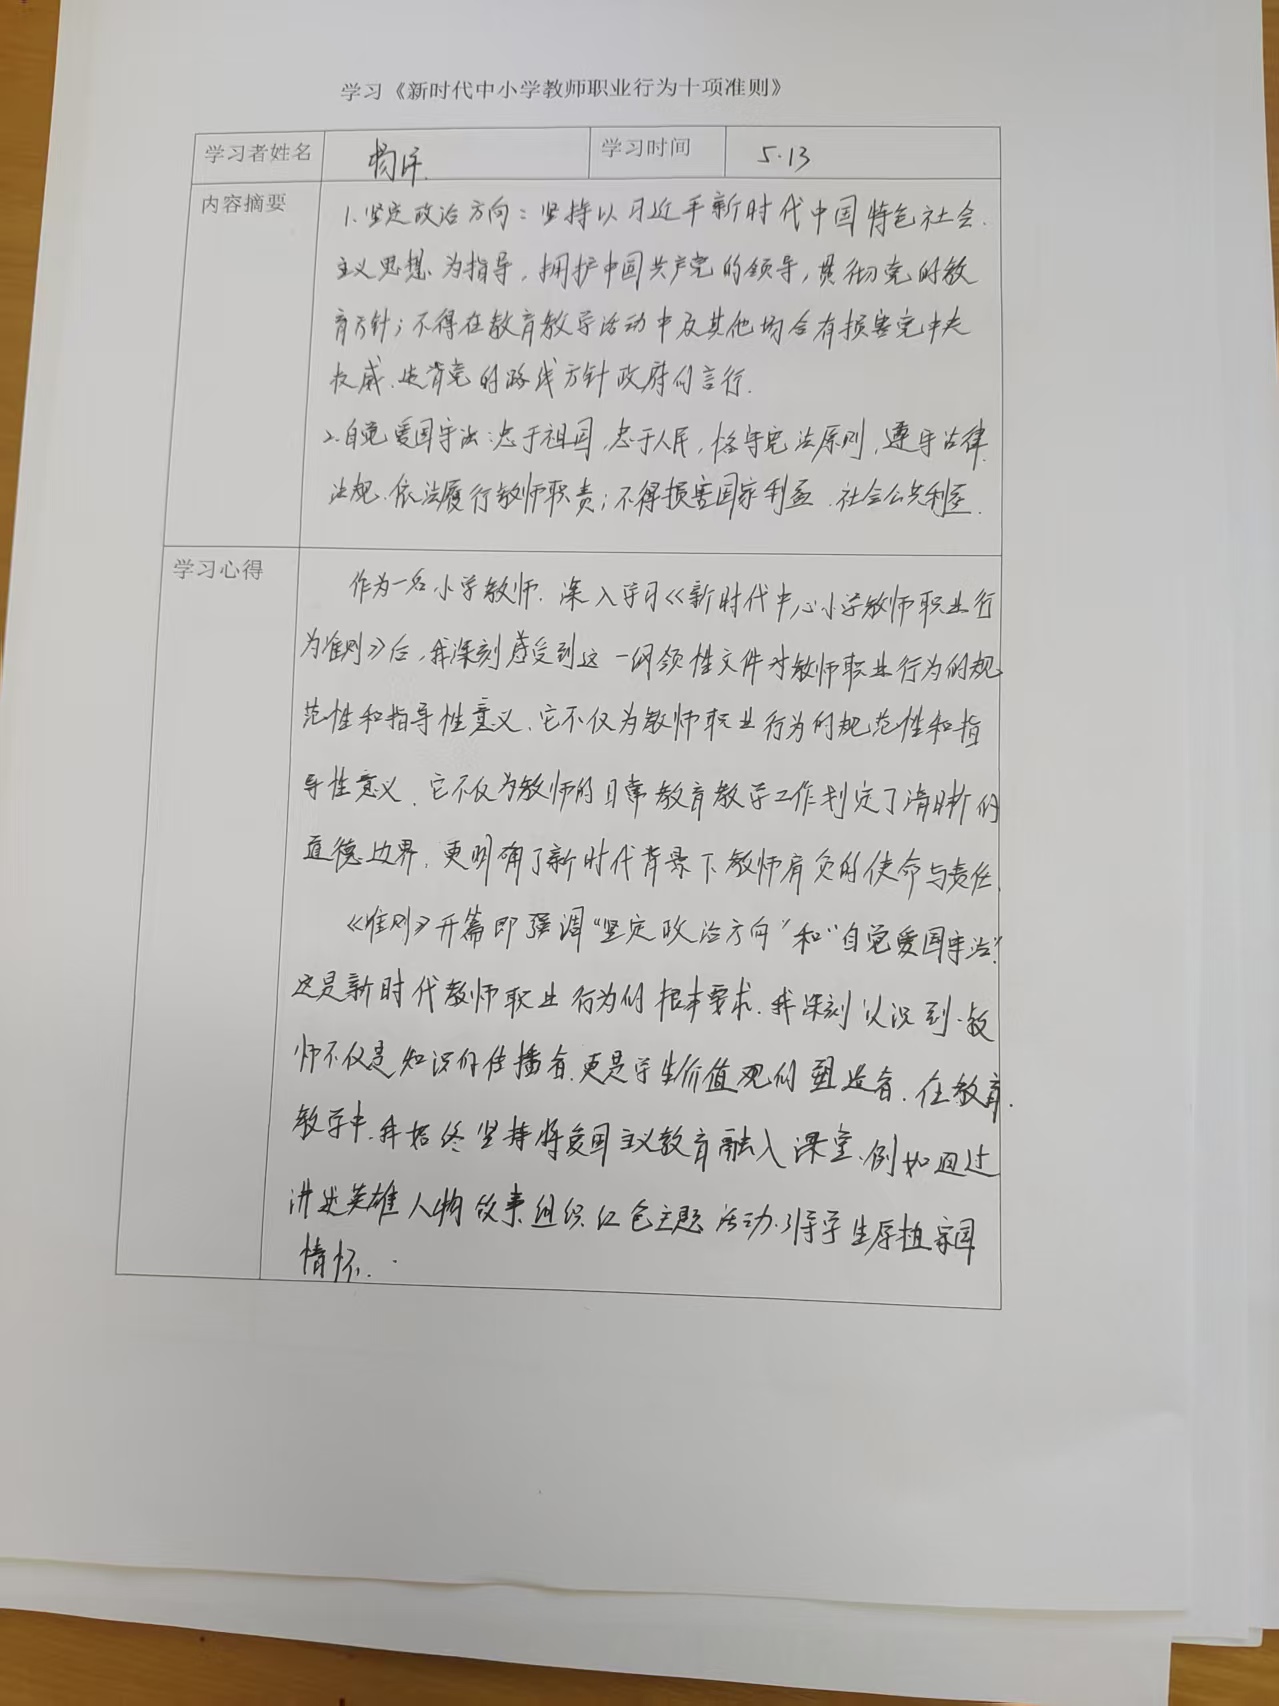 学习《新时代中小学教师职业行为十项准则》
学习者姓名 杨洋. 学习时间 5.13
内容摘要
1.坚定政治方向：坚持以习近平新时代中国特色社会
主义思想为指导，拥护中国共产党的领导，贯彻党的教
育方针；不得在教育教学活动中及其他场合有损害党中央
权威、违背党的路线方针政府的言行.
2.自觉爱国守法：忠于祖国，忠于人民，恪守宪法原则，遵守法律
法规、依法履行教师职责；不得损害国家利益、社会公共利益.
学习心得
作为一名小学教师、深入学习《新时代中心小学教师职业行
为准则》后，我深刻感受到这一纲领性文件对教师职业行为的规
范性和指导性意义、它不仅为教师职业行为的规范性和指
导性意义、它不仅为教师的日常教育教学工作划定了清晰的
道德边界、更明确了新时代背景下教师肩负的使命与责任.
《准则》开篇即强调“坚定政治方向”和“自觉爱国守法”
这是新时代教师职业行为的根本要求.我深刻认识到、教
师不仅是知识的传播者、更是学生价值观的塑造者、在教育
教学中、我始终坚持将爱国主义教育融入课堂、例如通过
讲述英雄人物故事、组织红色主题活动、引导学生厚植家国
情怀.